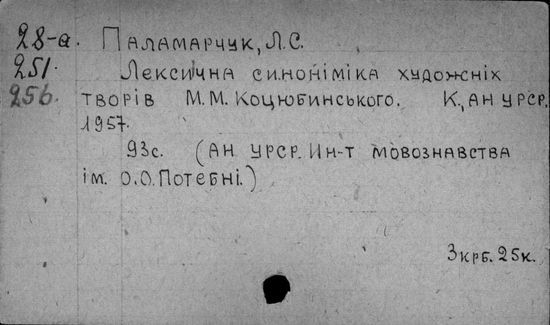 28-а. Паламарчук, Л.С.
251. Лексична синоніміка художніх
256. творів М.М. Коцюбинського. К., АН УРСР,
1957.
93с. (АН УРСР. Ин-т мовознавства
ім. О.О. Потебні.)
3 крб. 25к.